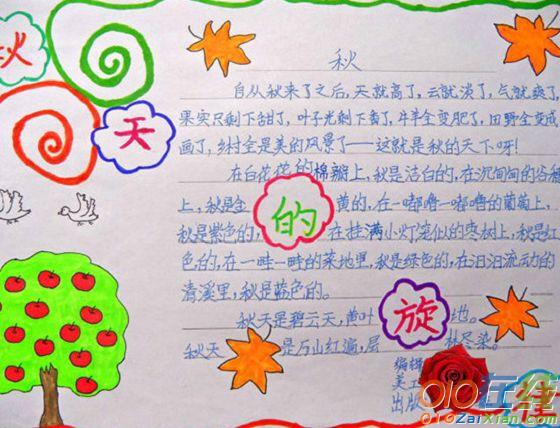 秋
天
的
旋
秋
自从秋来了之后,天就高了,云就淡了,气就爽了,
果实只剩下甜了,叶子光剩下香了,牛羊全变肥了,田野全成
画了,乡村全是美的风景了——这就是秋的天下呀!
在白花花的棉瓣上,秋是洁白的,在沉甸甸的谷穗
上,秋是金黄的,在一嘟噜一嘟噜的葡萄上,
秋是紫色的,在挂满小灯笼似的枣树上,秋是红
色的,在一畦一畦的菜地里,秋是绿色的,在汩汩流动的
清溪里,秋是蓝色的。
秋天是碧云天,黄叶地。
秋天是万山红遍,层林尽染。
编辑
美工
出版
010在线
010ZaiXian.com